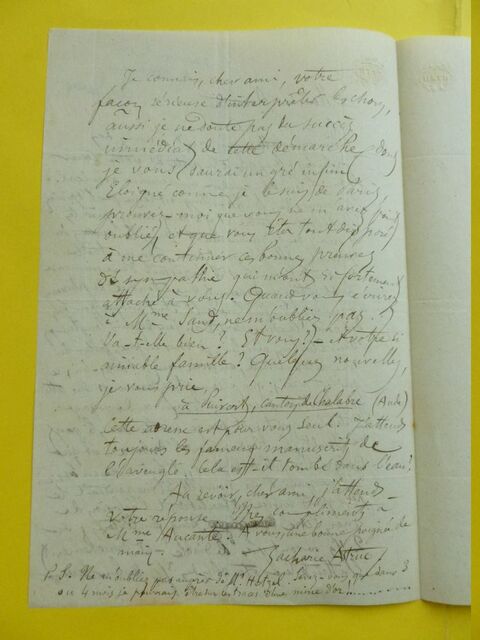 Je connais, cher ami, votre
façon sérieuse d'interpréter les choses,
aussi je ne doute pas du succès
immédiat de cette démarche dont
je vous saurai un gré infini
Eloigné comme je le suis de Paris,
prouvez-moi que vous ne m'avez pas
oublié, et que vous êtes tout disposé
à me continuer ces bonnes preuves
de sympathie qui m'ont si fortement
attaché à vous. Quand vous écrivez
à Mme Sand, ne m'oubliez pas.
Va-t-elle bien ? Et vous ? - et votre si
aimable famille ? Quelques nouvelles,
je vous prie,
à Puivert, canton de Chalabre (Aude)
cette adresse est pour vous seul. J'attends
toujours les fameux manuscrits de
l'aveugle. Cela est-il tombé dans l'eau ?
Au revoir, cher ami, j'attends
votre réponse. Mes compliments à
Mme Aucante. A vous, une bonne poignée de
main
Zacharie Astruc
P.S. Ne m'oubliez pas auprès de Mr Hetzel. Savez-vous que dans 3
ou 4 mois je pourrais être sur les traces d'une mine d'or